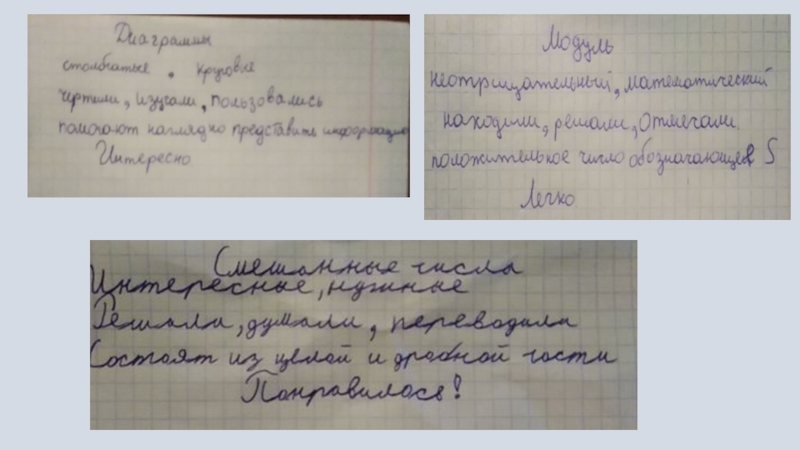 Диаграммы
столбчатые, круговые
чертили, изучали, пользовались
помогают наглядно представить информацию
Интересно
Модуль
неотрицательный, математический
находили, решали, отмечали
положительное число обозначающее S
Легко
Смешанные числа
Интересные, нужные
Решали, думали, переводили
Состоят из целой и дробной части
Понравилось!